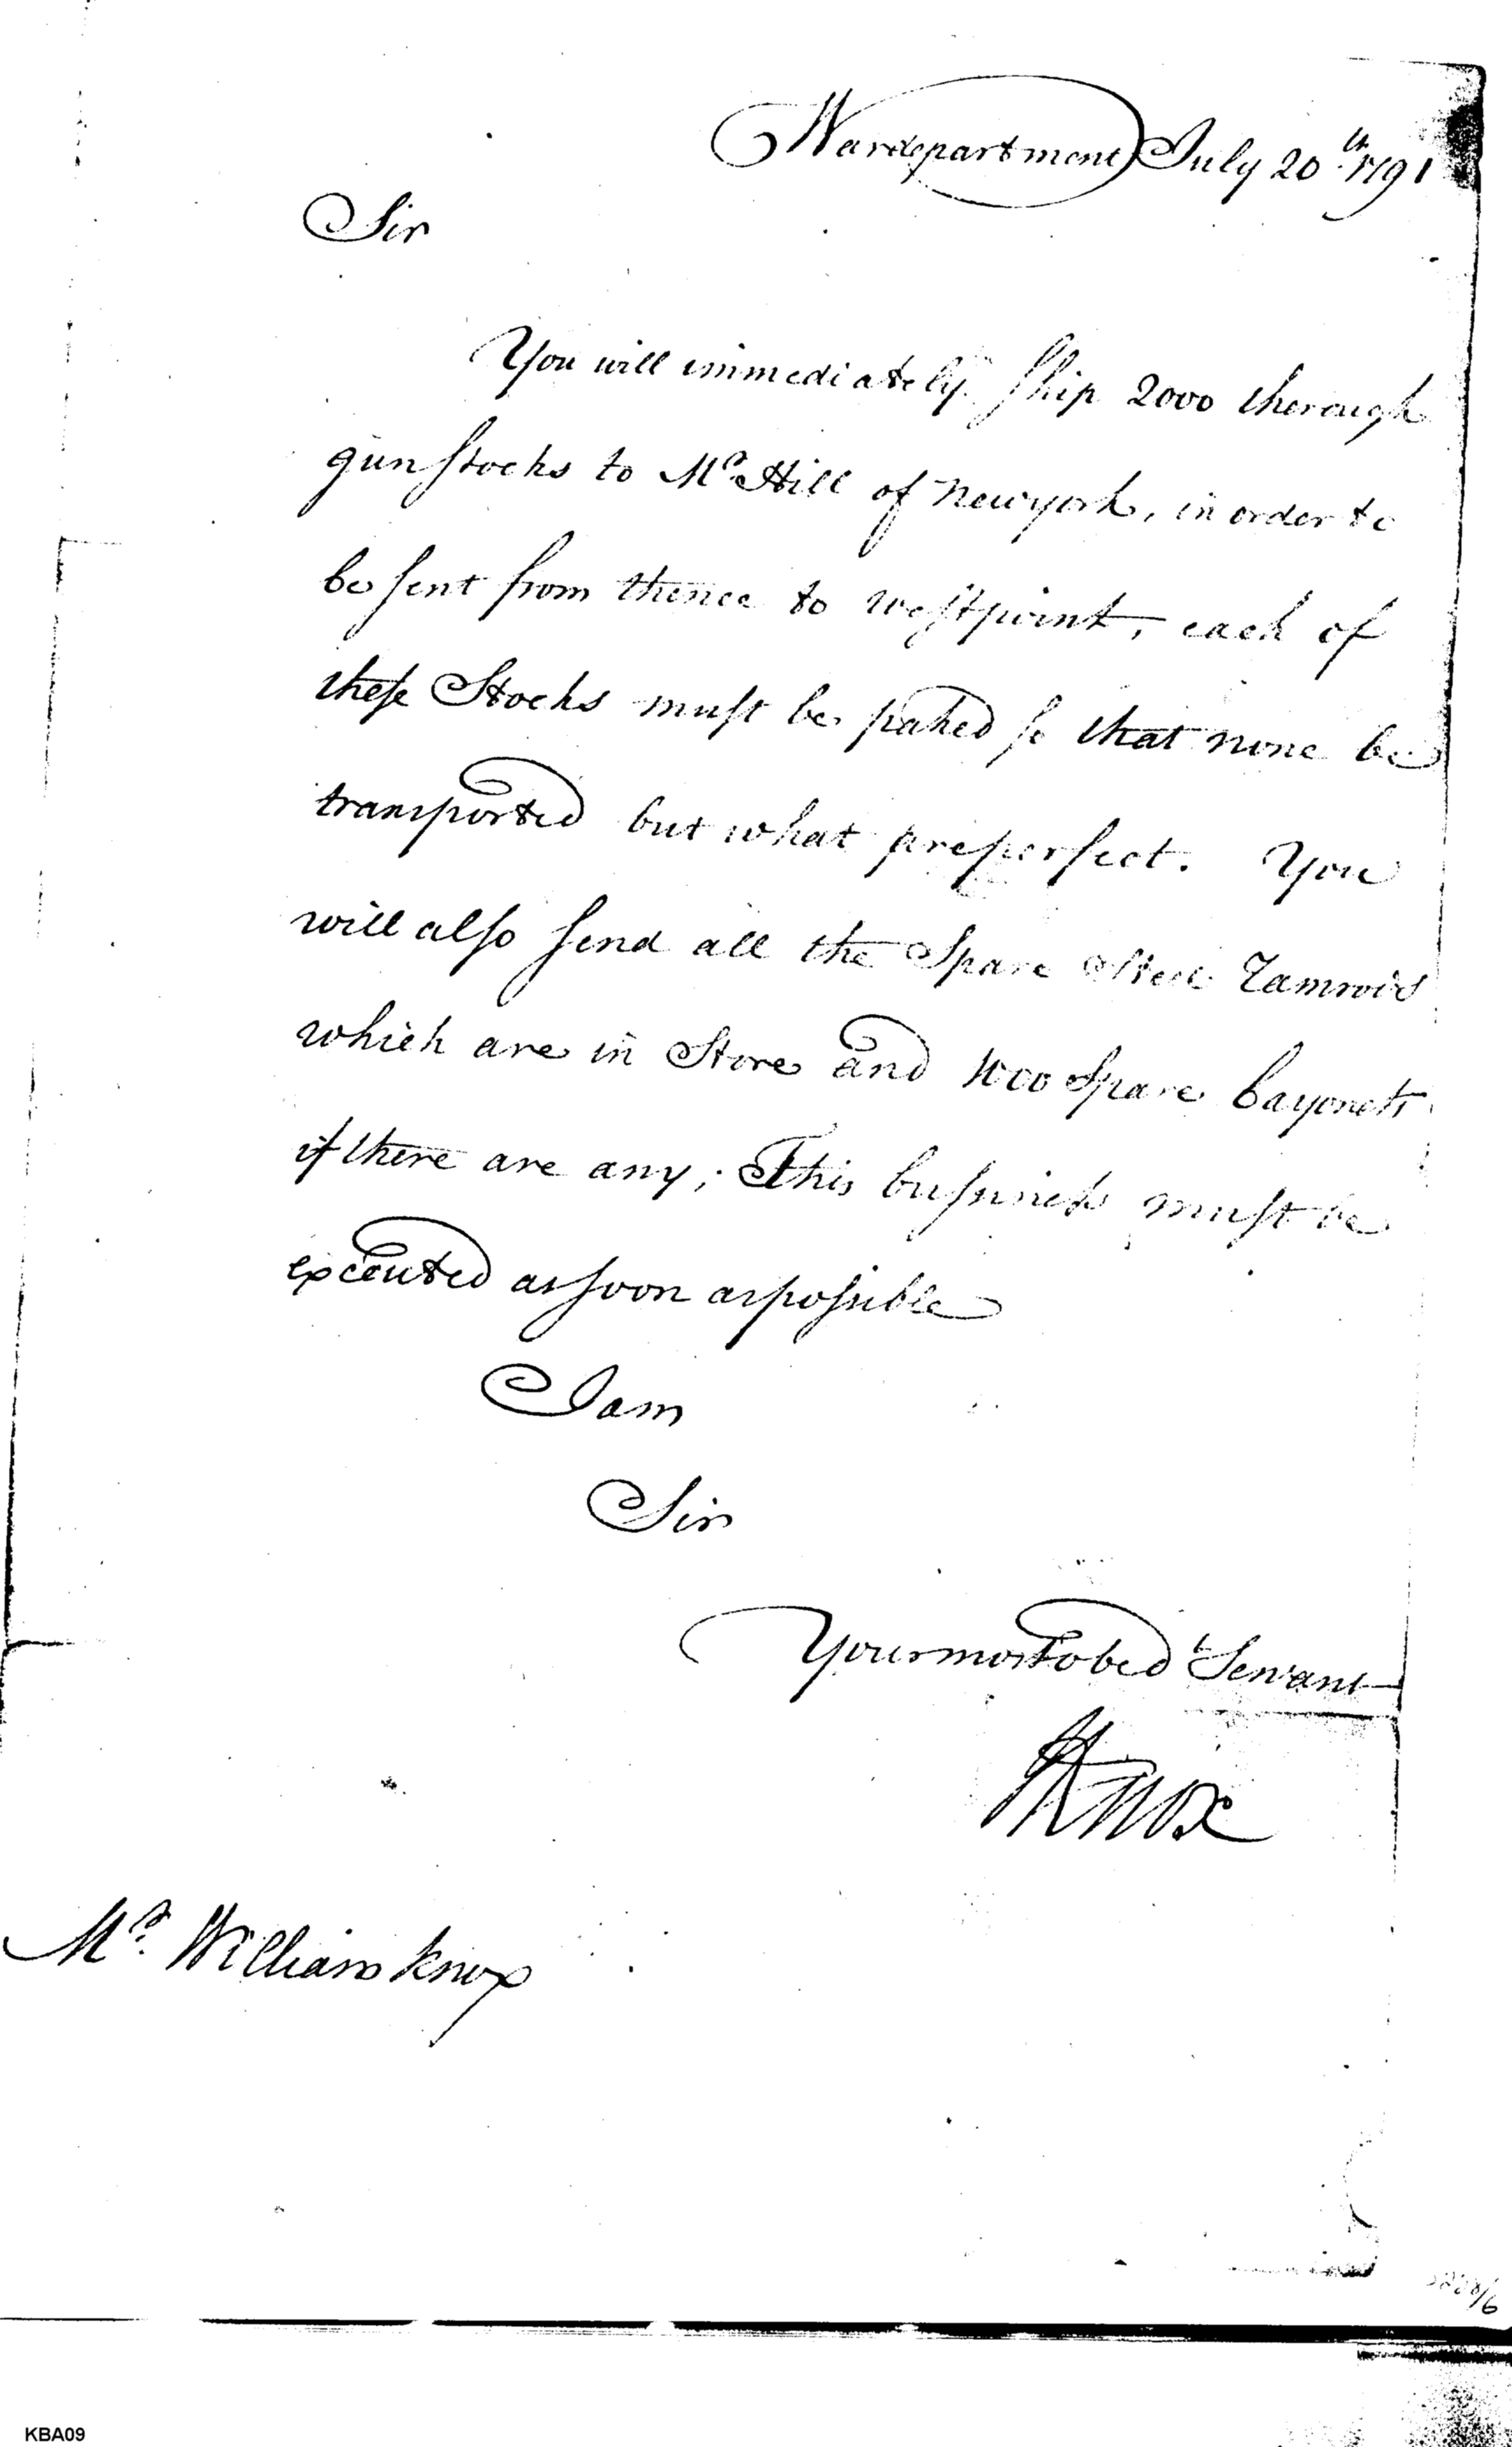 Wardepartment July 20th 1791
Sir
You will immediately ship 2000 thorough
gunstocks to Mr. Hill of newyork, in order to
be sent from thence to westpoint, each of
these Stocks must be paked so that none be
transported but what preperfect. You
will also send all the Spare Steel Ramrods
which are in Store and 1000 Spare bayonets
if there are any; This bussiness must be
executed as soon as possible
I am
Sir
Your most obedt Servant
HKnox
Mr. William Knox
KBA09